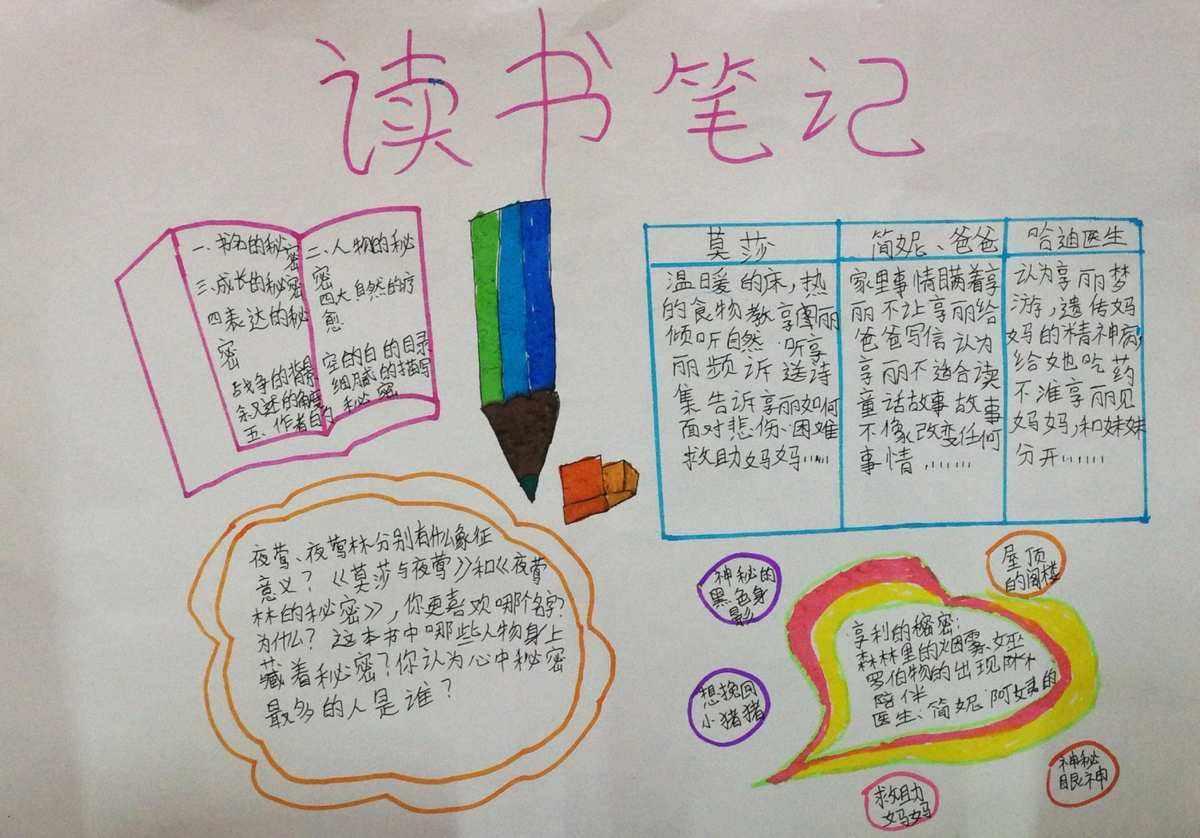 读书笔记
一、书名的秘密
三、成长的秘密
四表达的秘
密
战争的背景
二、人物的秘
密
四大自然的疗
愈
空的白的目录
细腻的描写
五、作者的秘密
莫莎
温暖的床,热
的食物教享丽
倾听自然 听享
丽倾诉 送诗
集 告诉享丽如何
面对悲伤、困难
救助妈妈……
简妮、爸爸
家里事情瞒着享
丽不让享丽给
爸爸写信 认为
享丽不适合读
童话故事 故事
不像改变任何
事情 ……
哈迪医生
认为享丽梦
游,遗传妈
妈的精神病
给她吃药
不准享丽见
妈妈,和妹妹
分开……
夜莺、夜莺林分别有什么象征
意义?《莫莎与夜莺》和《夜莺
林的秘密》,你更喜欢哪个名字?
为什么?这本书中哪些人物身上
藏着秘密?你认为心中秘密
最多的人是谁?
神秘的
黑色身
影
想挽回
小猪猪
救助
妈妈
神秘
眼神
屋顶
的阁楼
享利的秘密:
森林里的烟雾、
罗伯物的出现
陪伴
医生、简妮